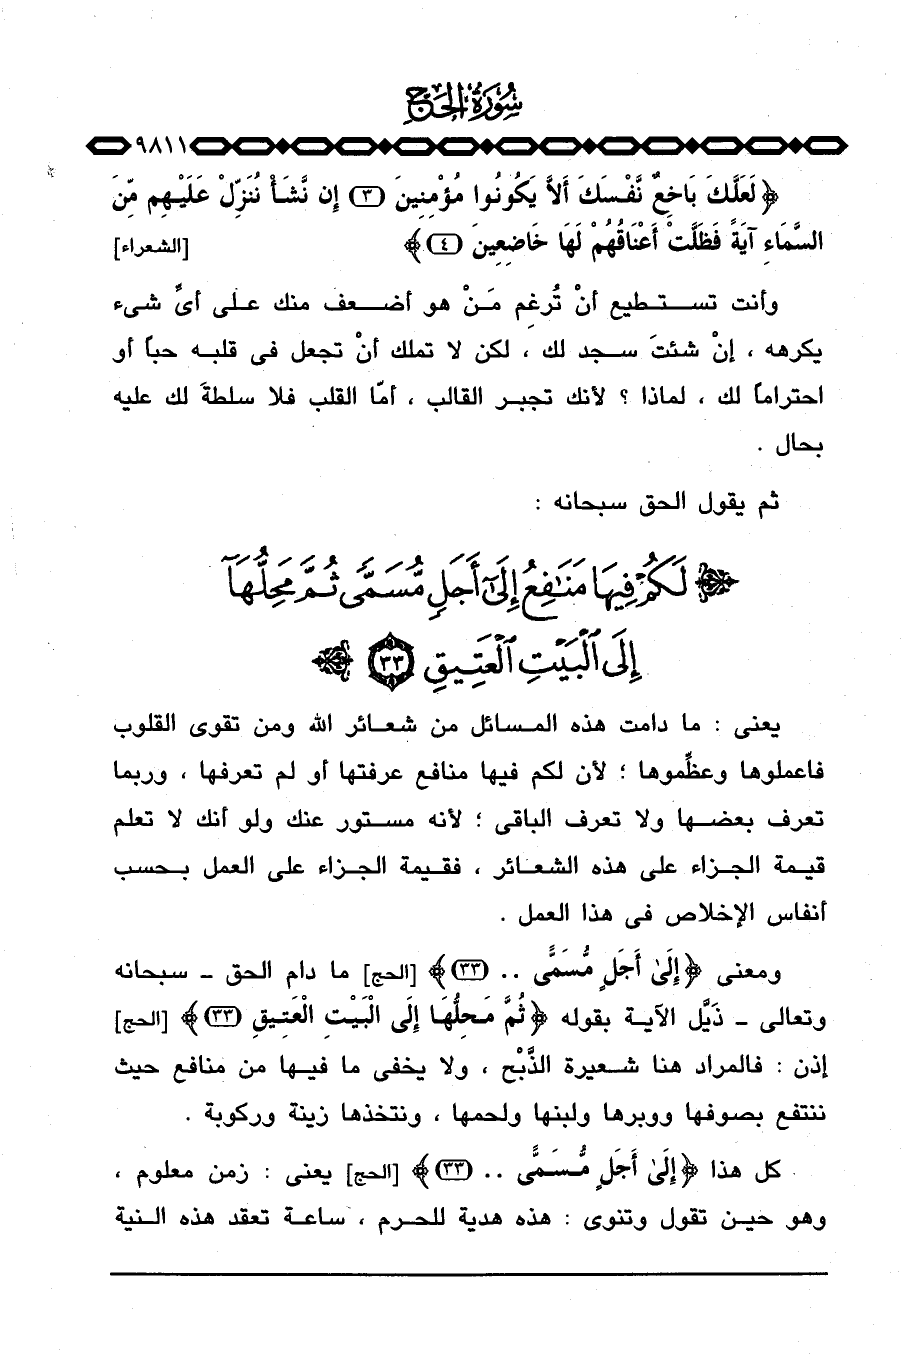 سُورَةُ الْحَجِّ
٩٨١١
﴿ لَعَلَّكَ بَاخِعٌ نَّفْسَكَ أَلاَّ يَكُونُوا مُؤْمِنِينَ (٣) إِن نَّشَأْ نُنَزِّلْ عَلَيْهِم مِّنَ
السَّمَاءِ آيَةً فَظَلَّتْ أَعْنَاقُهُمْ لَهَا خَاضِعِينَ (٤) ﴾ [الشعراء]
وأنت تستطيع أنْ تُرغم مَنْ هو أضعف منك على أىِّ شىء
يكرهه ، إنْ شئتَ سجد لك ، لكن لا تملك أنْ تجعل فى قلبه حباً أو
احتراماً لك ، لماذا ؟ لأنك تجبر القالب ، أمّا القلب فلا سلطةَ لك عليه
بحال .
ثم يقول الحق سبحانه :
﴿ لَكُمْ فِيهَا مَنَٰفِعُ إِلَىٰٓ أَجَلٍ مُّسَمًّى ثُمَّ مَحِلُّهَآ
إِلَى ٱلْبَيْتِ ٱلْعَتِيقِ ٣٣ ﴾
يعنى : ما دامت هذه المسائل من شعائر الله ومن تقوى القلوب
فاعملوها وعظِّموها ؛ لأن لكم فيها منافع عرفتها أو لم تعرفها ، وربما
تعرف بعضها ولا تعرف الباقى ؛ لأنه مستور عنك ولو أنك لا تعلم
قيمة الجزاء على هذه الشعائر ، فقيمة الجزاء على العمل بحسب
أنفاس الإخلاص فى هذا العمل .
ومعنى ﴿ إِلَىٰ أَجَلٍ مُّسَمًّى .. (٣٣) ﴾ [الحج] ما دام الحق ـ سبحانه
وتعالى ـ ذَيَّل الآية بقوله ﴿ ثُمَّ مَحِلُّهَا إِلَى الْبَيْتِ الْعَتِيقِ (٣٣) ﴾ [الحج]
إذن : فالمراد هنا شعيرة الذَّبْح ، ولا يخفى ما فيها من منافع حيث
ننتفع بصوفها ووبرها ولبنها ولحمها ، ونتخذها زينة وركوبة .
كل هذا ﴿ إِلَىٰ أَجَلٍ مُّسَمًّى .. (٣٣) ﴾ [الحج] يعنى : زمن معلوم ،
وهو حين تقول وتنوى : هذه هدية للحرم ، ساعة تعقد هذه النية